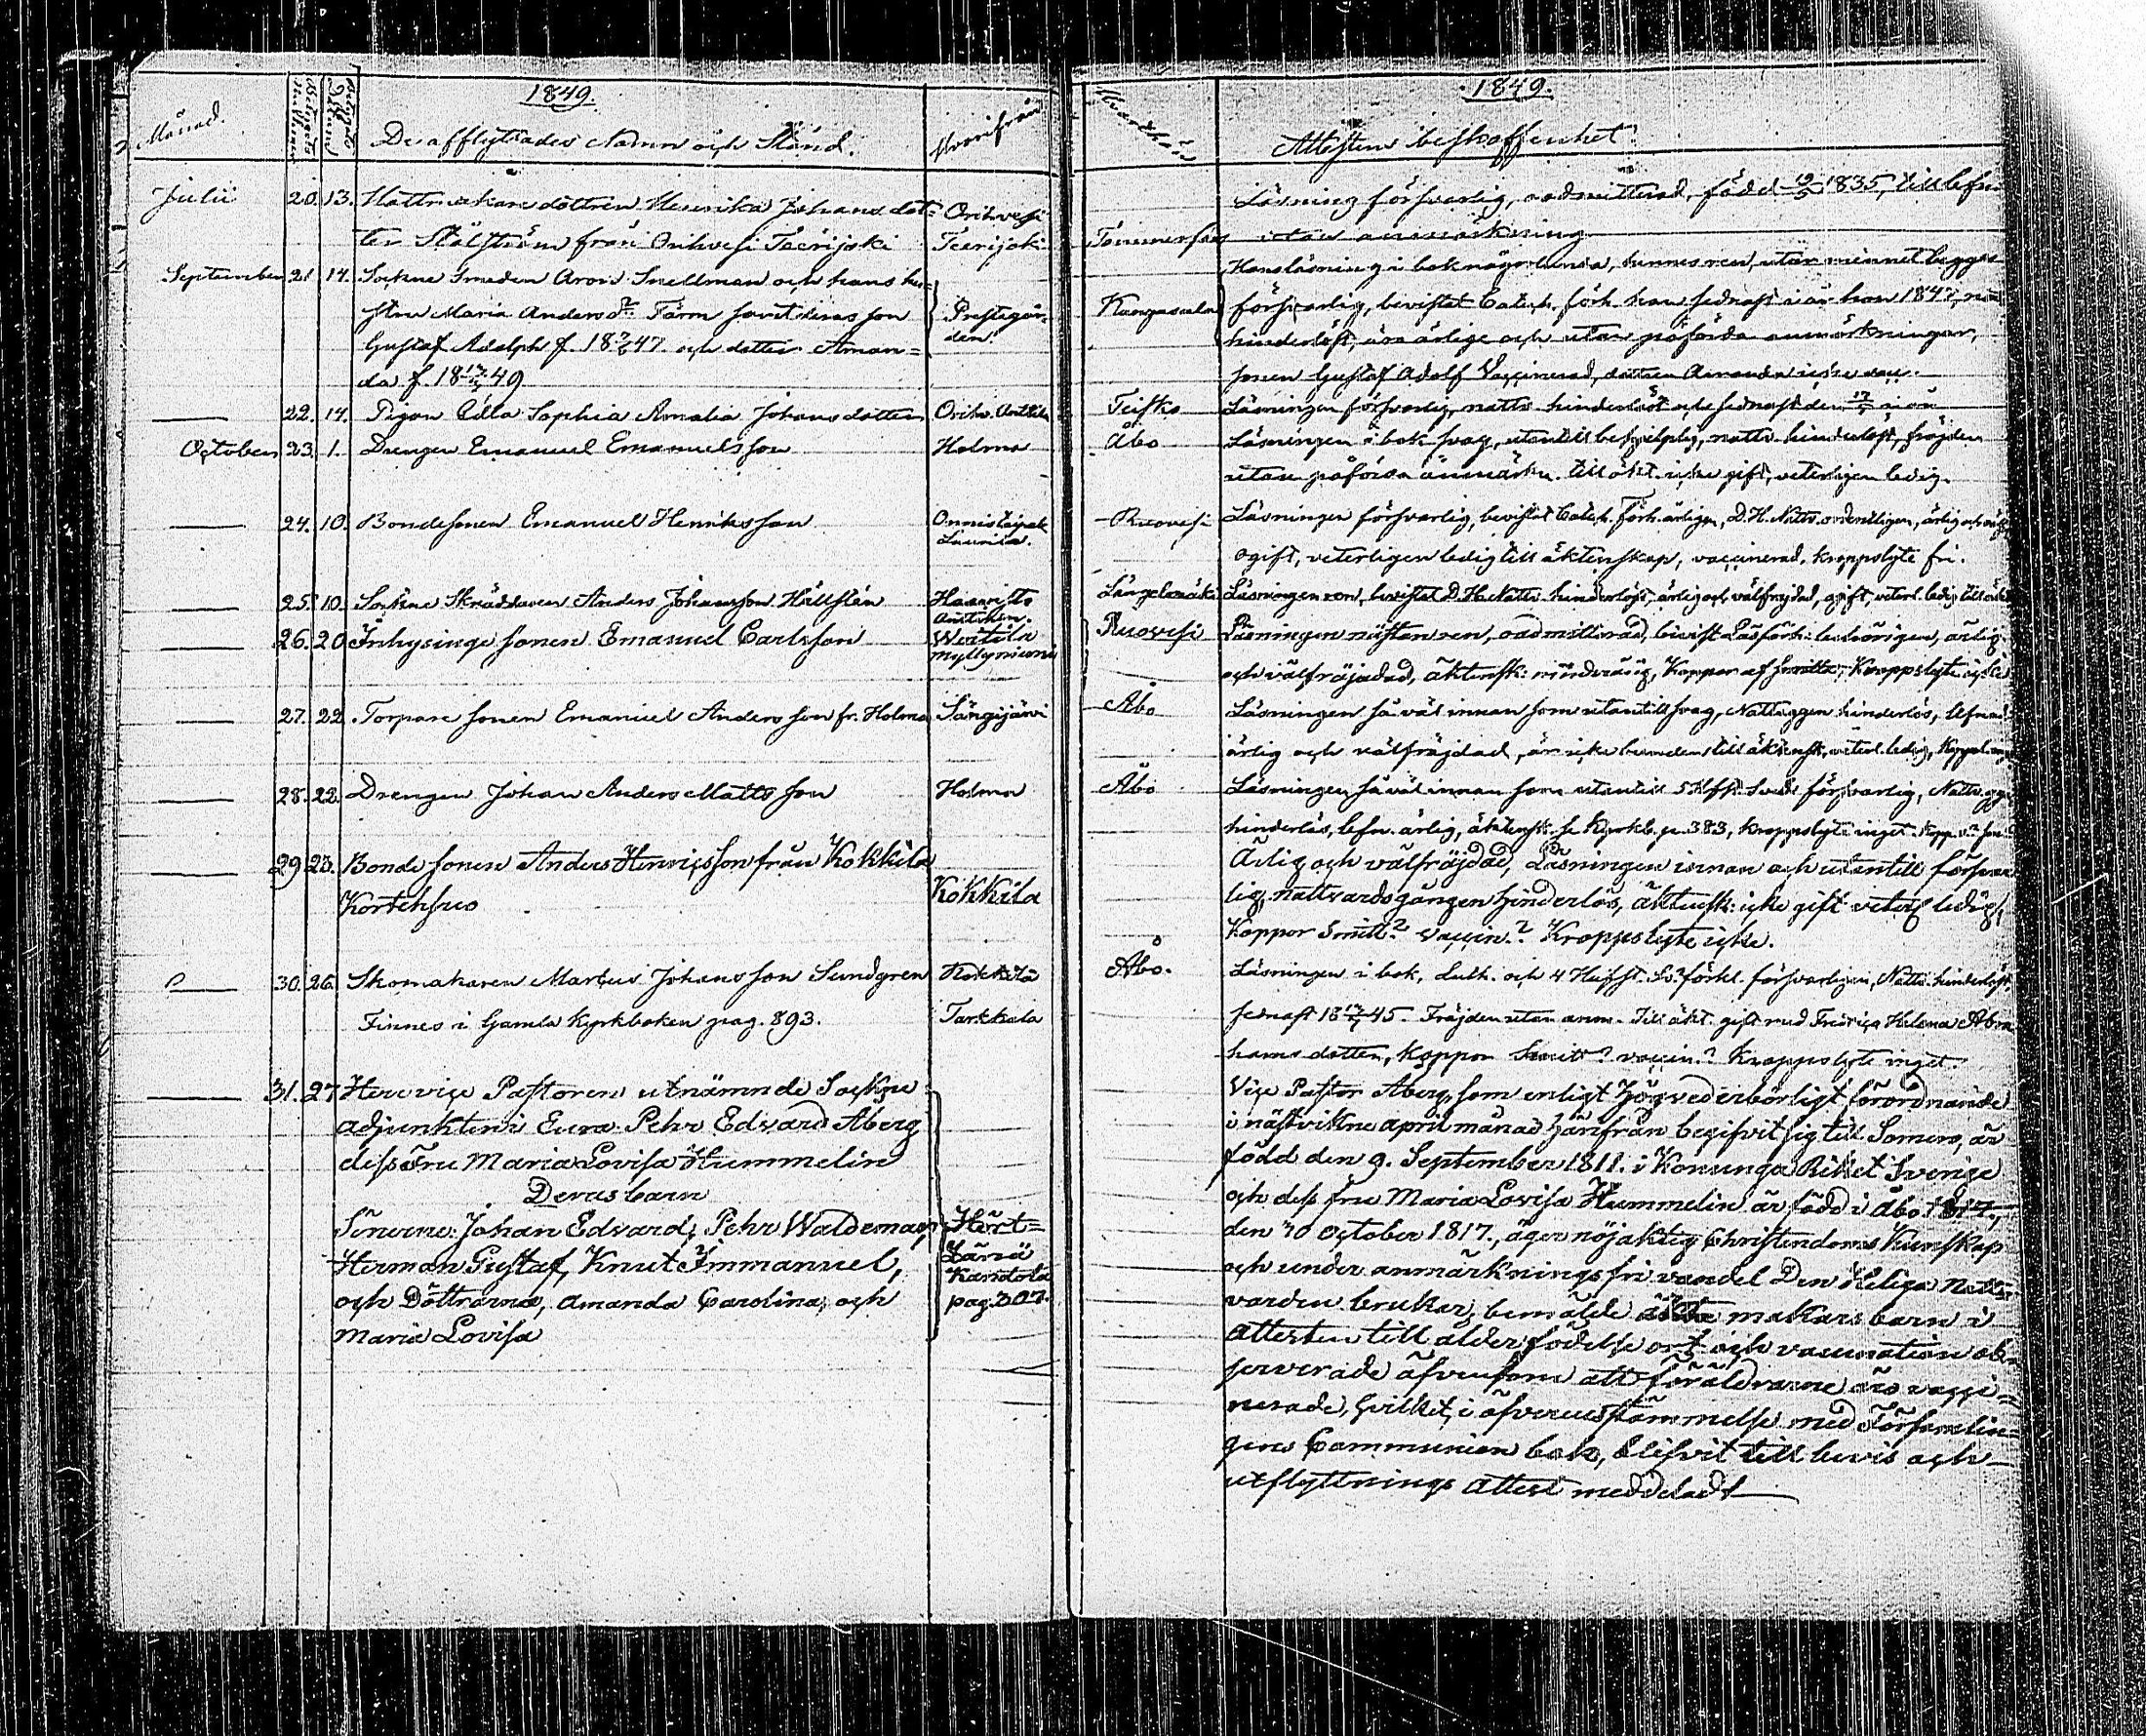 1849.
Månad.
De afflyttades Namn och Stånd.
Hvarifrån
Julii 20. 13. Hattmakare dottren Henrika Johansdot= Orihvesi
ter Stålström från Orihvesi Teerijoki Teerijoki
September 21 14. Sockne Smeden Arvis Snellman och hans hu=
stru Maria Anders dr Färm samt deras son Prestgår=
Gustaf Adolph f. 18 47. och dotter Aman= den.
da f. 18 49
22. 14. Pigan Edla Sophia Amalia Johansdotter Orihv.
October 23. 1. Drengen Emanuel Emanuelsson Holma
24. 10. Bondesonen Emanuel Henriksson Onnistaipale
Laurila.
25. 10. Sockne Skräddaren Anders Johansson Hällstén
26. 20 Inhysinge sonen Emanuel Carlsson
Myllyniemi
27. 22. Torpare sonen Emanuel Andersson fr. Holma Sängijärvi
28. 22. Drengen Johan Anders Mattsson Holma
29 23. Bonde sonen Anders Henricsson från Kokkila
Kortehsuo Kokkila
30. 26. Skomakaren Marcus Johansson Sundgren Kokkila
Finnes i Gamla Kyrkboken pag. 893. Tarkkala
31. 27 Herr vice Pastoren utnämnde Sockne
adjunkten i Eura Pehr Edvard Åberg
dess Fru Maria Lovisa Hummelin
Deras barn
Sönerne: Johan Edvard, Pehr Waldemar,
Herman Gustaf, Knut Immanuel,
och Döttrarna, Amanda Carolina, och Kantola
Maria Lovisa pag. 307.
1849.
Hvarthän
Attestens beskaffenhet
Läsning försvarlig, oadmitterad, född 19/5 1835, till lefver
utan anmärkning
Hans läsning i bok någorlunda, hennes ren, utan minnet begges
Kangasala försvarlig, bevistat Catech. förh. han sednast i år hon 1847,
hinderlöst, äro ärlige och utan påförda anmärkningar,
sonen Gustaf Adolf Vaccinerad, dottren Amanda icke vacc.
Teisko Läsningen försvarlig, nattv. hinderlöst och sednast den i år
Åbo Läsningen i bok svag, utantill, nattv. hinderlöst, fräjden
utan påförda anmärkn. till äkt. icke gift, veterligen ledig.
Ruovesi Läsningen försvarlig, bevistat Catech. Förh. årligen, D. H. Nattv. ordentligen, ärlig och
ogift, veterligen ledig till äktenskap, vaccinerad, kroppslyte fri.
Längelmäki Läsningen ren, bevistat D. H. Nattv. hinderlöst, ärlig och välfrejdad, ogift, veterl. ledig till
Ruovesi Läsningen nästan ren, oadmitterad, bevist Läsförh: behörigen, ärlig
och välfräjdad, äktensk: minderårig, Koppor af Smitta, Kroppslyte icke
Åbo Läsningen så väl innan som utantill svag, Nattv.ggn hinderlös, lefnad
ärlig och välfräjdad, är icke bunden till äktensk., veterl. ledig,
Åbo Läsningen så väl innan som utantill 5 Hfst. Sveb. försvarlig, Nattv.
hinderlös, lefn. ärlig, äktensk. se Kyrkb. p. 383, kroppslyte inget.
Ärlig och välfräjdad, Läsningen innan och utantill försvar
lig, nattvardsgången hinderlös, äktensk: icke gift veterl. ledig,
Koppor Smitt? vaccin.? Kroppslyte icke.
Åbo. Läsningen i bok, Luth. och 4 Hufst. Sv. förkl. försvarligen, Nattv. hinderlöst,
sednast 18 45. Fräjden utan anm. Till äkt. gift med Fredrica Helena Abra
hams dotter, Koppor Smitt? vaccin.? Kroppslyte inget.
Vice Pastor Åberg, som enligt Högvederbörligt förordnande
i nästvikne april månad härifrån begifvit sig till Somero, är
född den 9. September 1811. i Konunga Riket Sverige
och dess fru Maria Lovisa Hummelin är född i Åbo 1817,
den 30 October 1817., äger nöjaktig Christendoms Kunskap
och under anmärkningsfri vandel Den Heliga Natt=
varden brukar, bemälde äkta makars barn i
attesten till ålder, födelse ort och vaccination ob=
serverade äfvensom att föräldrarne äro vacci=
nerade, hvilket, i öfverensstämmelse med Församlin=
gens Communion bok, blifvit till bevis och
utflyttnings attest meddeladt